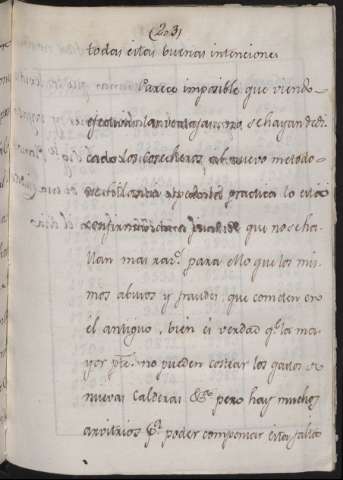 (203)
todas estas buenas intenciones
Parece imposible que viendo
efectivas las ventajas, no se hayan dedi-
cado los cosecheros al nuevo metodo
la practica lo está
confirmando que no se ha-
llan mas raz.s para ello que los mis-
mos abusos y fraudes que cometen en
él antiguo, bien es verdad q.e la ma-
yor p.te no pueden costear los gastos de
nuevas Calderas &.a pero hay muchos
arvitrios p.a poder compensar estas faltas